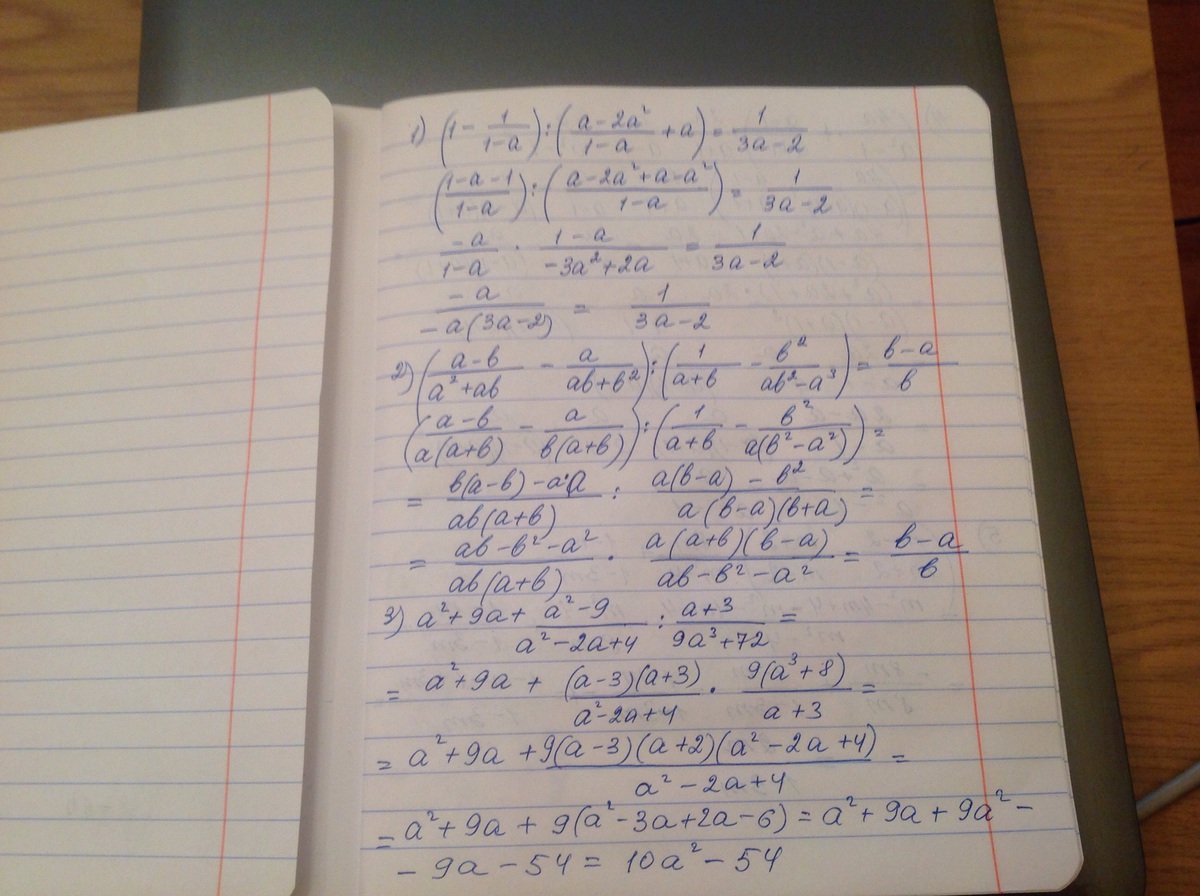 1) (1 - 1/(1-a)) : ((a-2a²)/(1-a) + a) = 1/(3a-2)
((1-a-1)/(1-a)) : ((a-2a²+a-a²)/(1-a)) = 1/(3a-2)
-a/(1-a) · (1-a)/(-3a²+2a) = 1/(3a-2)
-a/(-a(3a-2)) = 1/(3a-2)
2) ((a-в)/(a²+aв) - a/(aв+в²)) : (1/(a+в) - в²/(aв²-a³)) = (в-a)/в
((a-в)/(a(a+в)) - a/(в(a+в))) : (1/(a+в) - в²/(a(в²-a²))) =
= (в(a-в)-a·a)/(aв(a+в)) : (a(в-a)-в²)/(a(в-a)(в+a)) =
= (aв-в²-a²)/(aв(a+в)) · (a(a+в)(в-a))/(aв-в²-a²) = (в-a)/в
3) a²+9a+ (a²-9)/(a²-2a+4) : (a+3)/(9a³+72) =
= a²+9a + ((a-3)(a+3))/(a²-2a+4) · (9(a³+8))/(a+3) =
= a²+9a + (9(a-3)(a+2)(a²-2a+4))/(a²-2a+4) =
= a²+9a + 9(a²-3a+2a-6) = a²+9a+9a²-
- 9a - 54 = 10a²-54